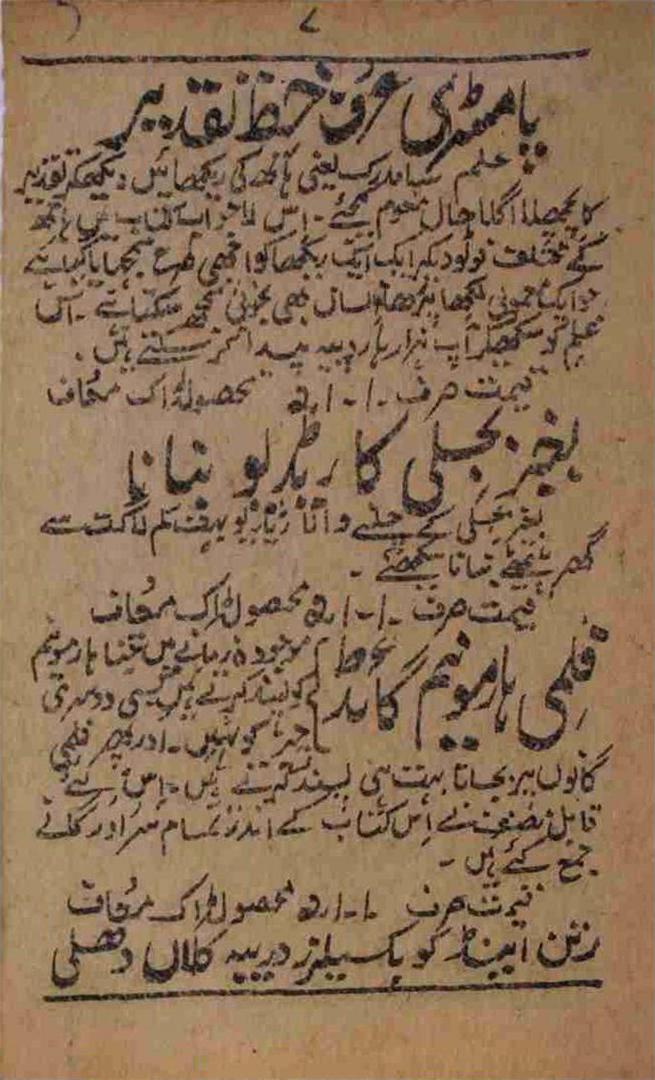 ۷
پامسٹری عرف خط تقدیر
علم سامدرک یعنی ہاتھ کی ریکھائیں دیکھکر تقدیر
کا پچھلا اگلا حال معلوم کیجئے۔ اس لاجواب کتاب میں ہاتھ
کے مختلف فوٹو دیکر ایک ایک ریکھا کو اچھی طرح سمجھایا گیا ہے
جو ایک معمولی لکھا پڑھا انسان بھی بخوبی سمجھ سکتا ہے۔ اس
علم کو سیکھکر آپ ہزارہا روپیہ پیدا کر سکتے ہیں۔
قیمت صرف محصول ڈاک معاف
بغیر بجلی کا ریڈیو بنانا
بغیر بجلی کے چلنے والا ریڈیو بہت کم لاگت سے
گھر بیٹھے بنانا سیکھئے۔
قیمت صرف محصول ڈاک معاف
فلمی ہارمونیم گائیڈ
موجودہ زمانے میں جتنا ہارمونیم
کو پسند کرتے ہیں کسی دوسری
چیز کو نہیں۔ اور پھر فلمی
گانوں پر بجانا بہت ہی پسند کرتے ہیں۔ اس لئے
قابل مصنف نے اس کتاب کے اندر تمام سر اور گانے
جمع کئے ہیں۔
قیمت صرف محصول ڈاک معاف
رتن اینڈ کو بکسیلرز دریبہ کلاں دھلی